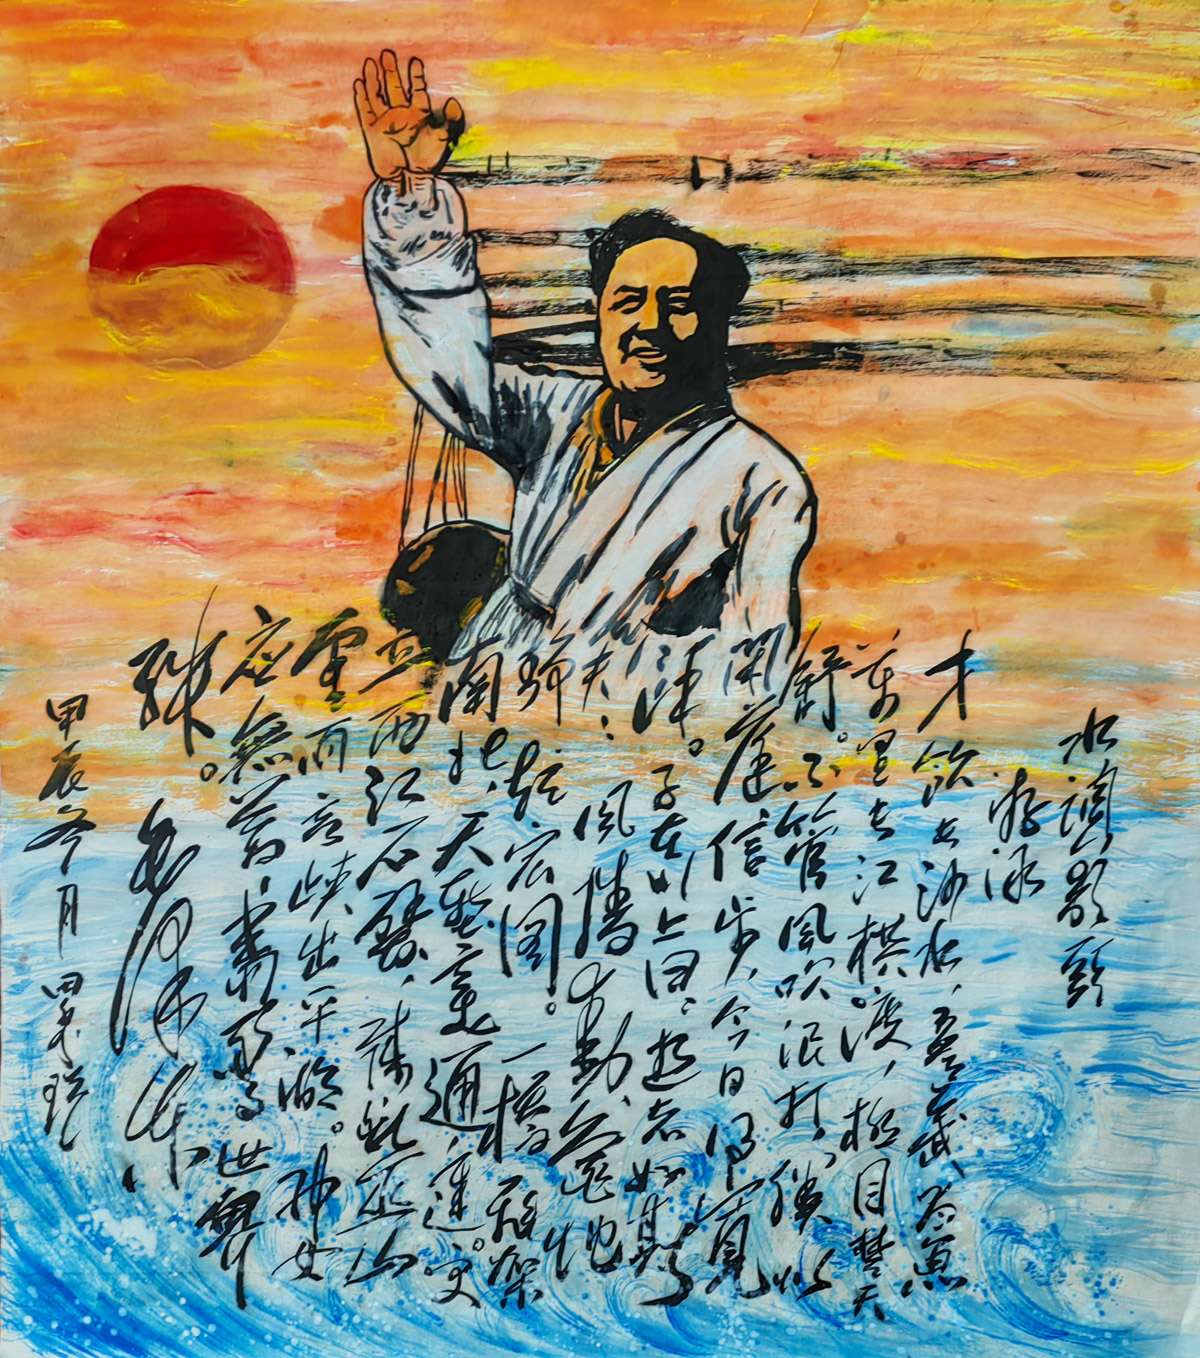 水调歌頭
游泳
才飲长沙水，又食武昌魚
万里长江横渡，极目楚天
舒。不管風吹浪打，勝似
閑庭信步，今日得寬
馀。子在川上曰：逝者如斯
夫：風樯動，龟蛇
静，起宏图。一桥飛架
南北，天堑变通途。更
立西江石壁，截断巫山
雲雨，高峡出平湖。神女
应無恙，當驚世界
殊。
毛泽东
甲辰冬月 田